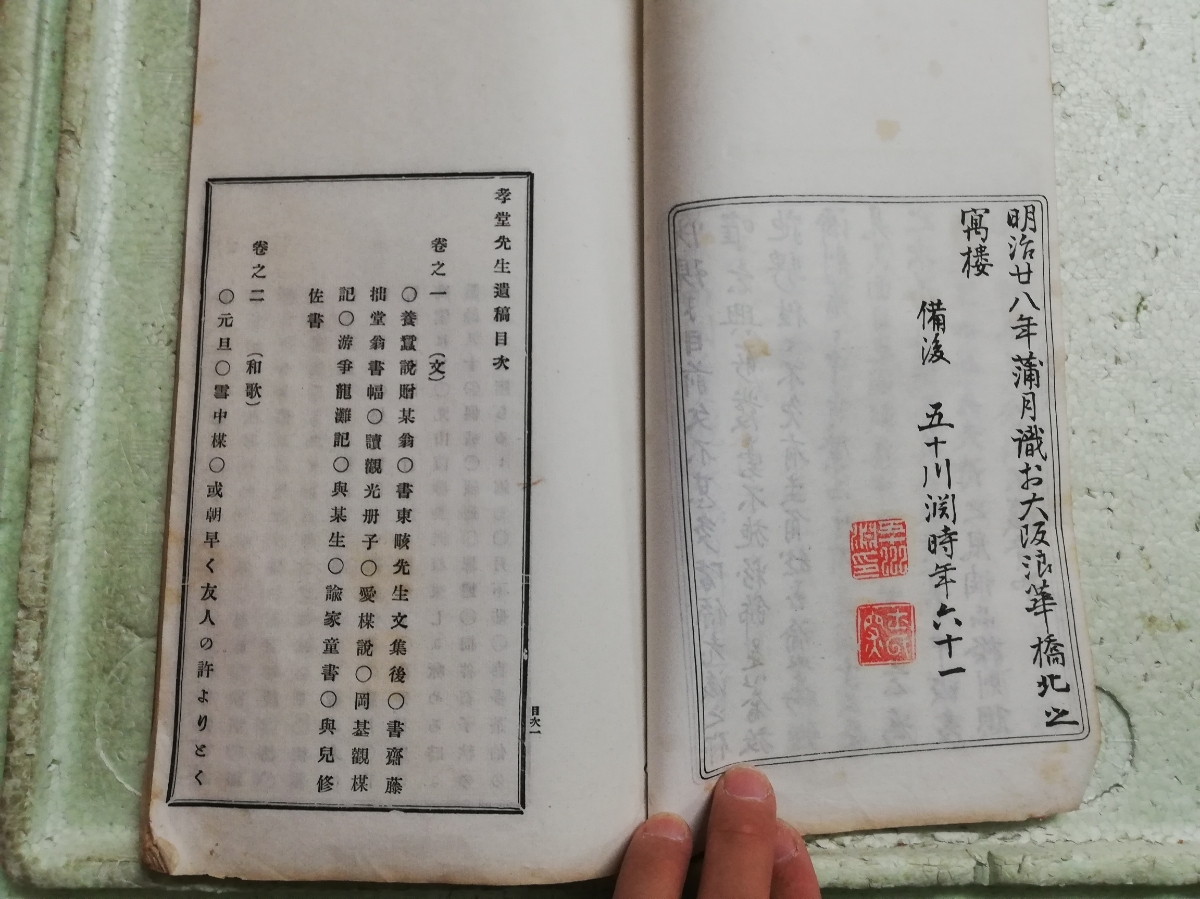 明治廿八年蒲月識お大阪浪華橋北之
寓楼
備後 五十川渕時年六十一
孝堂先生遺稿目次
卷之一 (文)
〇養蠶說贈某翁〇書東畡先生文集後〇書齋藤
拙堂翁書幅〇讀觀光册子〇愛楳說〇岡基觀楳
記〇游爭龍灘記〇與某生〇諭家童書〇與兒修
佐書
卷之二 (和歌)
〇元旦〇雪中楳〇或朝早く友人の許よりとく
目次一